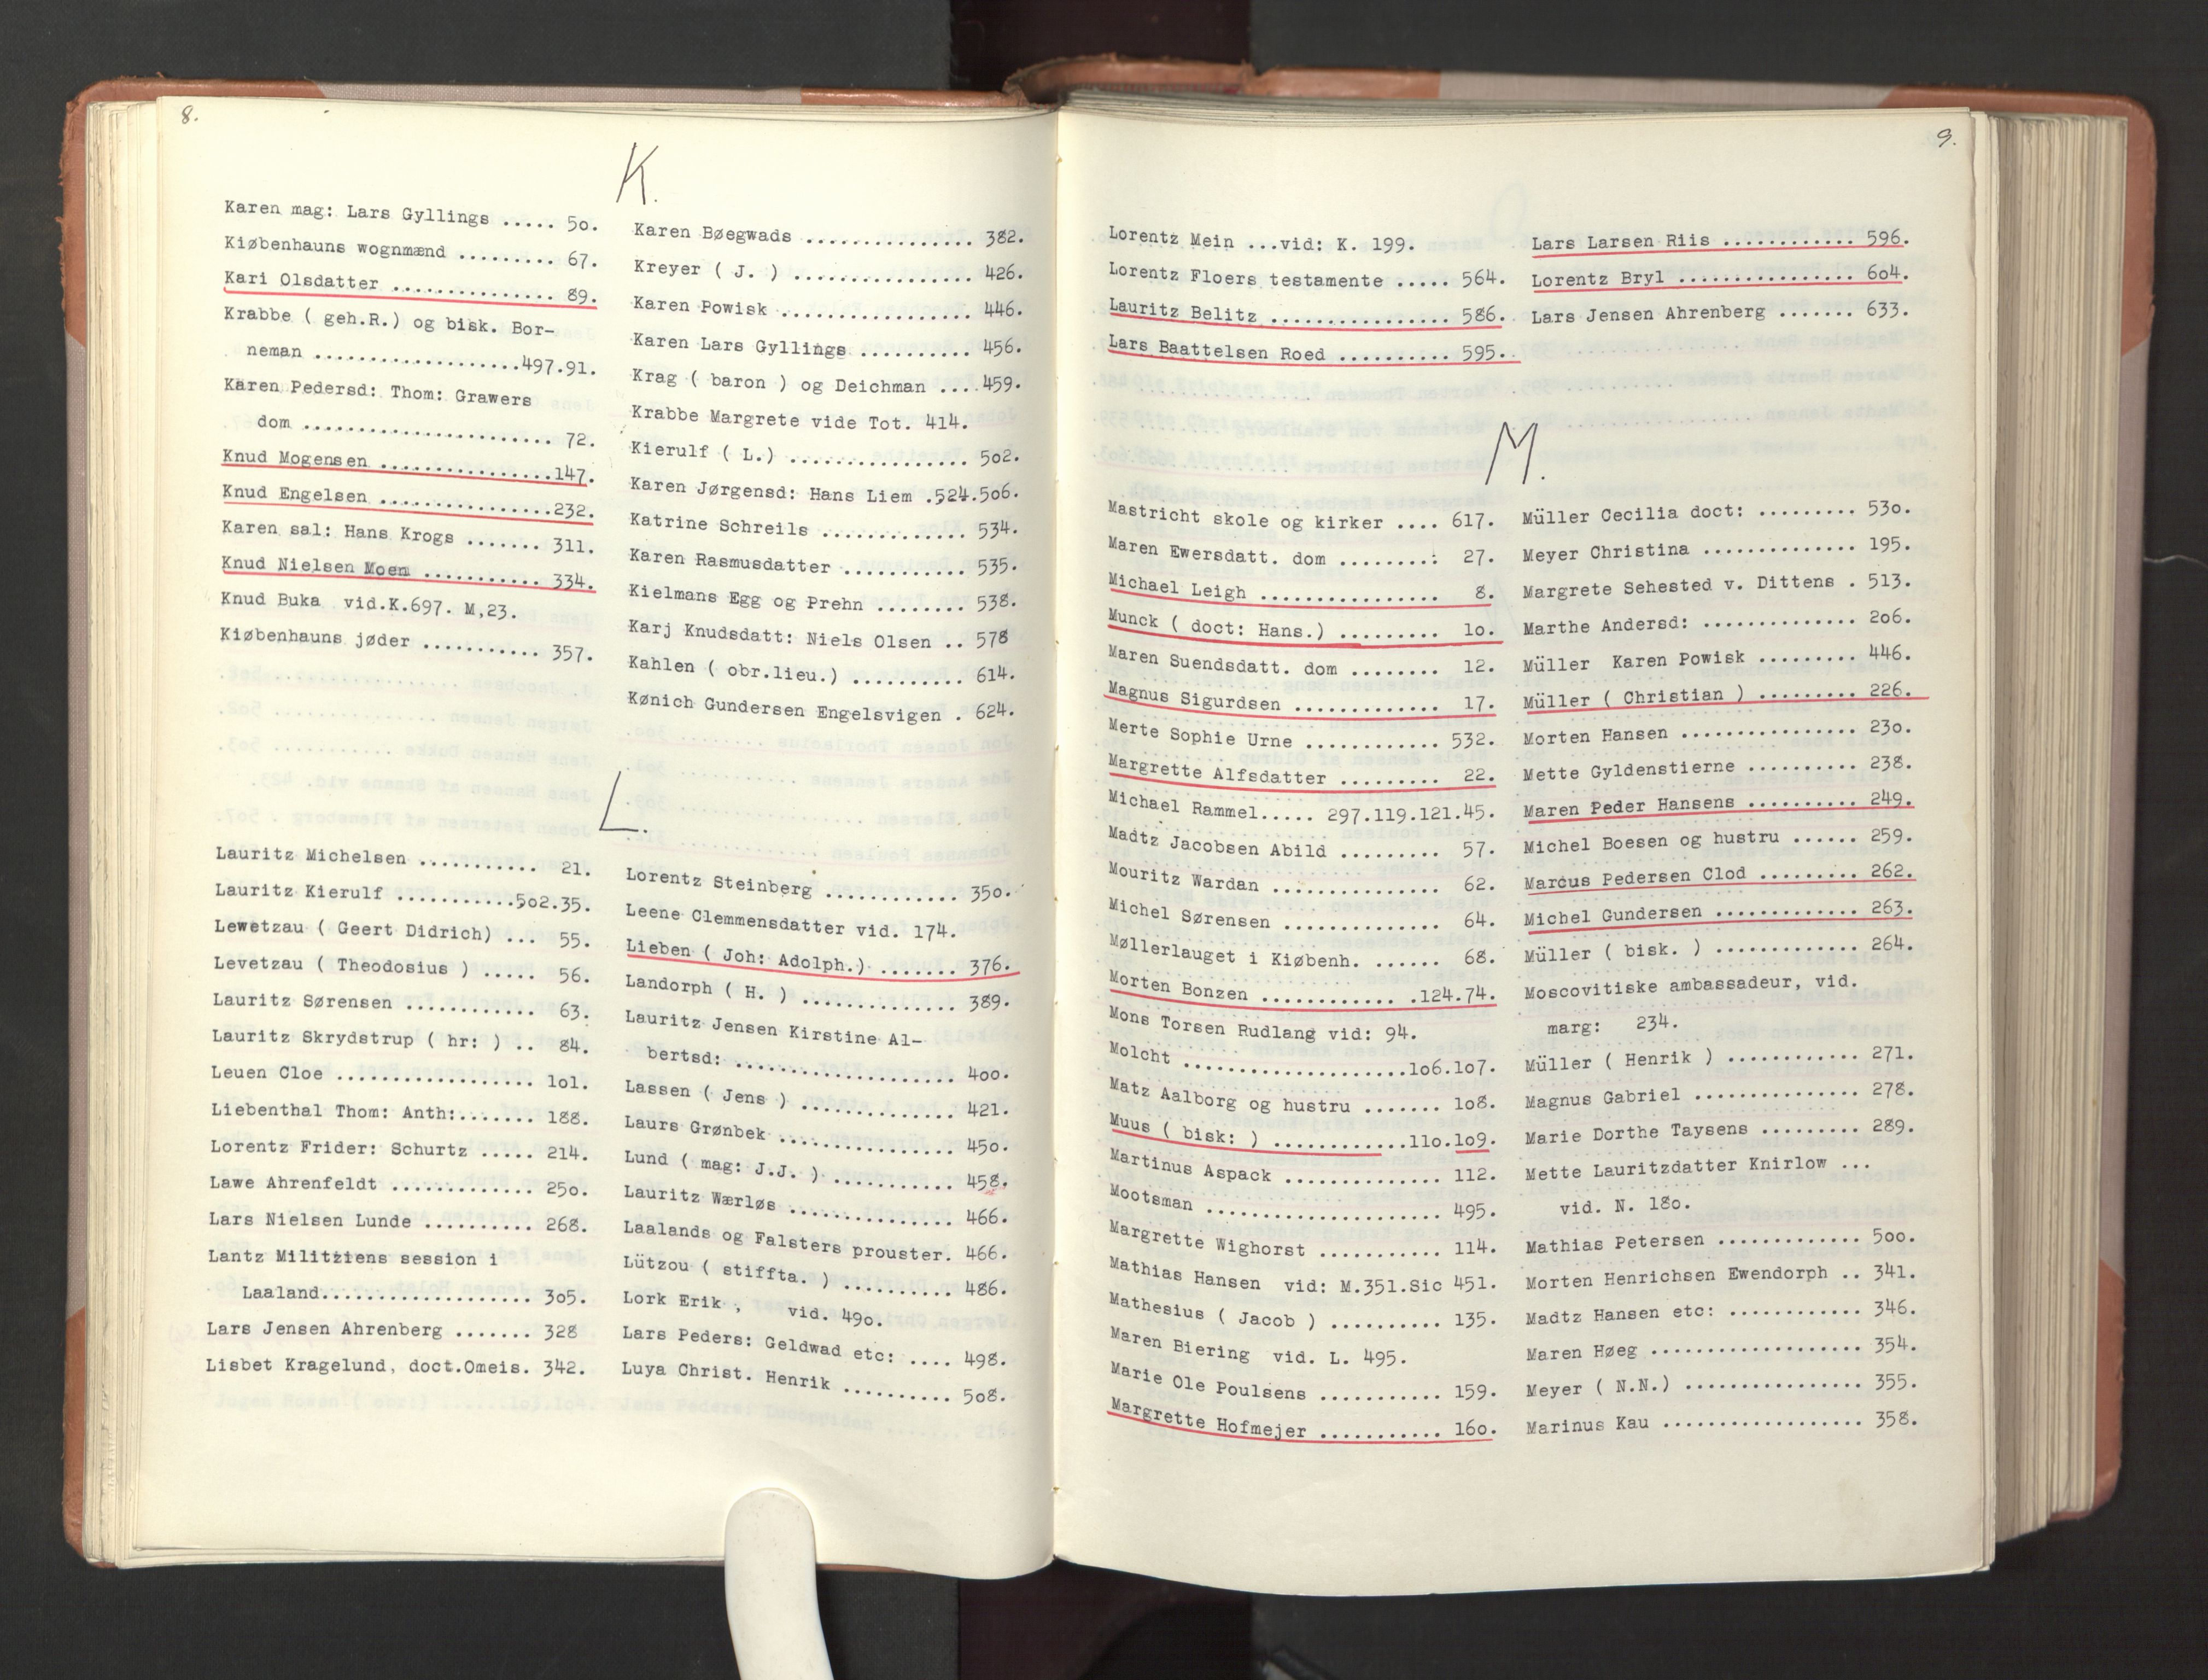 8.
K.
Karen mag: Lars Gyllings ..... 50.
Kiøbenhauns wognmænd ......... 67.
Kari Olsdatter ............... 89.
Krabbe ( geh.R.) og bisk. Bor-
neman ...................497.91.
Karen Pedersd: Thom: Grawers
dom ....................... 72.
Knud Mogensen ................147.
Knud Engelsen ................232.
Karen sal: Hans Krogs ....... 311.
Knud Nielsen Moen ........... 334.
Knud Buka vid.K.697. M,23.
Kiøbenhauns jøder ........... 357.
Karen Bøegwads ............... 382.
Kreyer ( J. ) ................ 426.
Karen Powisk ................. 446.
Karen Lars Gyllings .......... 456.
Krag ( baron ) og Deichman ... 459.
Krabbe Margrete vide Tot. 414.
Kierulf ( L.) ................ 502.
Karen Jørgensd: Hans Liem .524.506.
Katrine Schreils ............. 534.
Karen Rasmusdatter ........... 535.
Kielmans Egg og Prehn ........ 538.
Karj Knudsdatt: Niels Olsen .. 578
Kahlen ( obr.lieu.) .......... 614.
Kønich Gundersen Engelsvigen . 624.
L.
Lauritz Michelsen ........... 21.
Lauritz Kierulf ...........502.35.
Lewetzau ( Geert Didrich) ... 55.
Levetzau ( Theodosius ) ..... 56.
Lauritz Sørensen ............ 63.
Lauritz Skrydstrup ( hr: ) .. 84.
Leuen Cloe ................. 101.
Liebenthal Thom: Anth:....... 188.
Lorentz Frider: Schurtz ..... 214.
Lawe Ahrenfeldt ............. 250.
Lars Nielsen Lunde .......... 268.
Lantz Militziens session i
Laaland.................. 305.
Lars Jensen Ahrenberg ....... 328
Lisbet Kragelund, doct.Omeis. 342.
Lorentz Steinberg ............ 350.
Leene Clemmensdatter vid. 174.
Lieben ( Joh: Adolph.) ....... 376.
Landorph ( H. ) .............. 389.
Lauritz Jensen Kirstine Al-
bertsd: .................... 400.
Lassen ( Jens ) .............. 421.
Laurs Grønbek ................ 450.
Lund ( mag: J.J. ) ........... 458.
Lauritz Wærløs ............... 466.
Laalands og Falsters prouster. 466.
Lützou ( stiffta. ) .......... 486.
Lork Erik , vid. 490.
Lars Peders: Geldwad etc: .... 498.
Luya Christ. Henrik .......... 508.
9.
Lorentz Mein ...vid: K. 199.
Lorentz Floers testamente ..... 564.
Lauritz Belitz ................ 586.
Lars Baattelsen Roed .......... 595.
Lars Larsen Riis ............ 596.
Lorentz Bryl ................ 604.
Lars Jensen Ahrenberg ....... 633.
M.
Mastricht skole og kirker .... 617.
Maren Ewersdatt. dom ........: 27.
Michael Leigh ................ 8.
Munck ( doct: Hans.) ......... 10.
Maren Suendsdatt. dom ........ 12.
Magnus Sigurdsen ............. 17.
Merte Sophie Urne ............ 532.
Margrette Alfsdatter ......... 22.
Michael Rammel..... 297.119.121.45.
Madtz Jacobsen Abild ......... 57.
Mouritz Wardan ............... 62.
Michel Sørensen .............. 64.
Møllerlauget i Kiøbenh. ...... 68.
Morten Bonzen ............ .124.74.
Mons Torsen Rudlang vid: 94.
Molcht ....................106.107.
Matz Aalborg og hustru ....... 108.
Muus ( bisk: ) ............110.109.
Martinus Aspack .............. 112.
Mootsman ..................... 495.
Margrette Wighorst ........... 114.
Mathias Hansen vid: M.351.Sic 451.
Mathesius ( Jacob ) .......... 135.
Maren Biering vid. L. 495.
Marie Ole Poulsens ........... 159.
Margrette Hofmejer ........... 160.
Müller Cecilia doct: ......... 530.
Meyer Christina .............. 195.
Margrete Sehested v. Dittens . 513.
Marthe Andersd: .............. 206.
Müller Karen Powisk ......... 446.
Müller ( Christian ) ......... 226.
Morten Hansen ................ 230.
Mette Gyldenstierne .......... 238.
Maren Peder Hansens .......... 249.
Michel Boesen og hustru ...... 259.
Marcus Pedersen Clod ......... 262.
Michel Gundersen ............. 263.
Müller ( bisk. ) ............. 264.
Moscovitiske ambassadeur, vid.
marg: 234.
Müller ( Henrik ) ............ 271.
Magnus Gabriel ............... 278.
Marie Dorthe Taysens ......... 289.
Mette Lauritzdatter Knirlow ...
vid. N. 180.
Mathias Petersen ............. 500.
Morten Henrichsen Ewendorph .. 341.
Madtz Hansen etc: ............ 346.
Maren Høeg ................... 354.
Meyer ( N.N.) ................ 355.
Marinus Kau .................. 358.